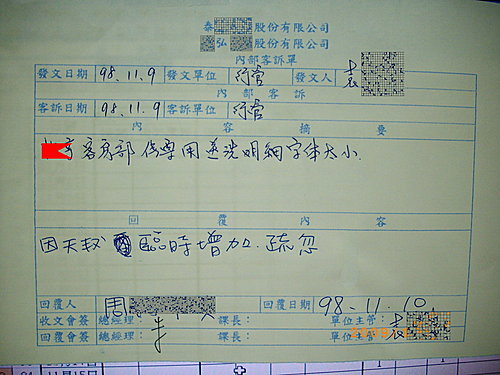 泰 股份有限公司
股份有限公司
內部客訴單
發文日期 98.11.9 發文單位 行管 發文人 袁
內部客訴
客訴日期 98.11.9 客訴單位 行管
內容摘要
客房部 專用送洗明細字体大小.
回覆內容
因天 臨時增加.疏忽
回覆人 周 回覆日期 98.11.10.
收文會簽 總經理： 課長： 單位主管：
回覆會簽 總經理： 課長： 單位主管： 袁